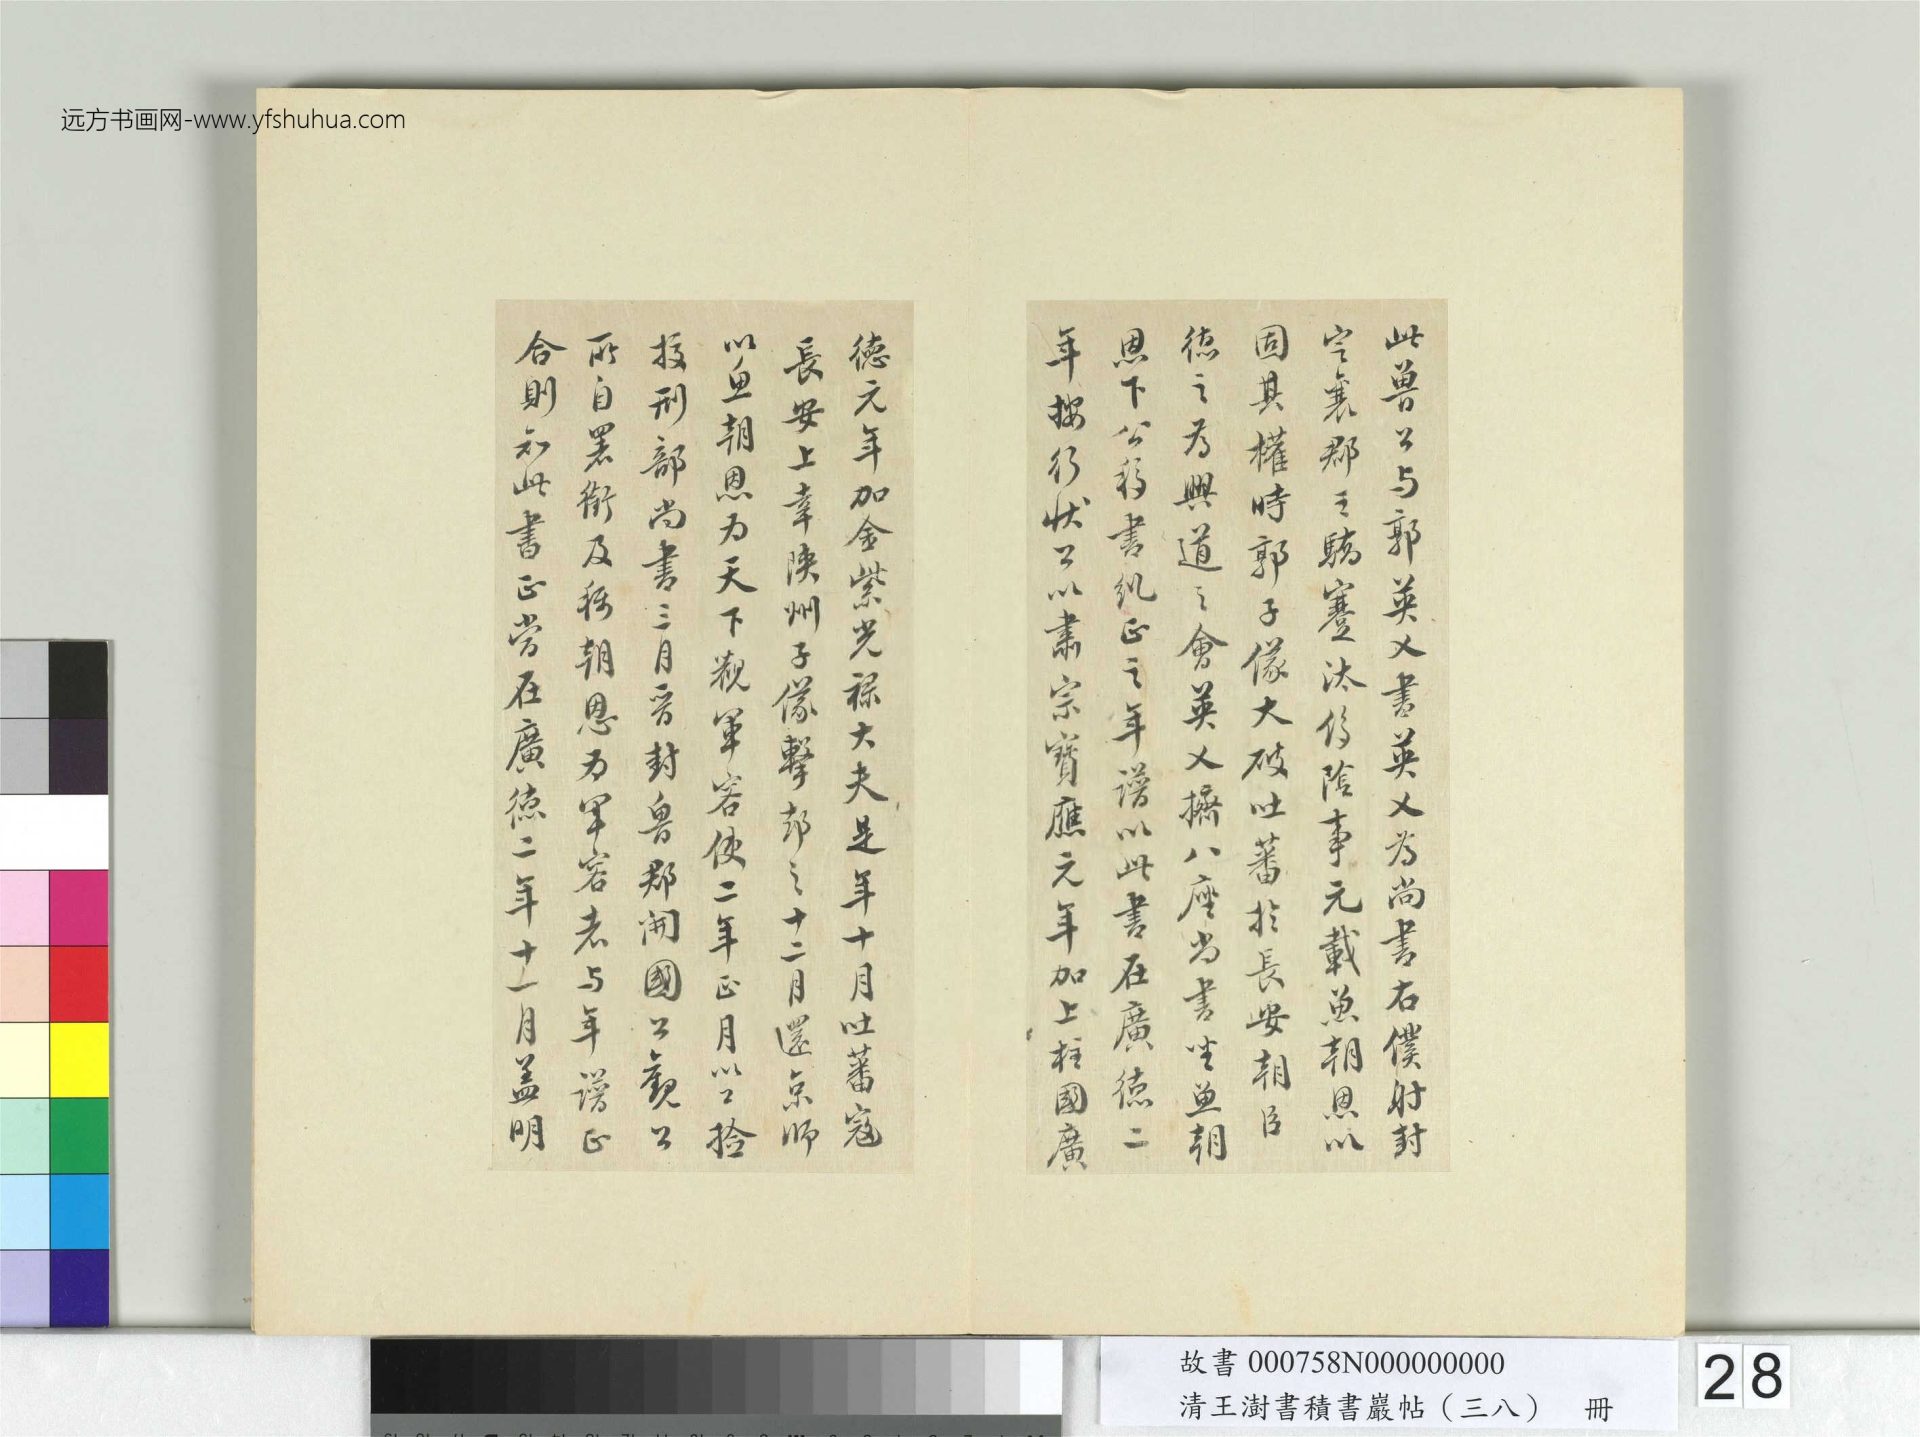 远方书画网-www.yfshuhua.com
此魯公与郭英乂書英乂為尚書右僕射封
定襄郡王驕蹇汰侈陰事元載魚朝恩以
固其權時郭子儀大破吐蕃於長安朝臣
德之為興道之會英乂擠八座尚書坐魚朝
恩下公移書糺正之年譜以此書在廣德二
年按行狀公以肅宗寶應元年加上柱國廣
德元年加金紫光祿大夫是年十月吐蕃寇
長安上幸陝州子儀擊却之十二月還京師
以魚朝恩为天下觀軍容使二年正月以公檢
挍刑部尚書三月晉封魯郡開國公觀公
所自署銜及稱朝恩为軍容者与年譜正
合則知此書正當在廣德二年十一月蓋明
故書 000758N000000000
清王澍書積書巖帖（三八） 冊
28